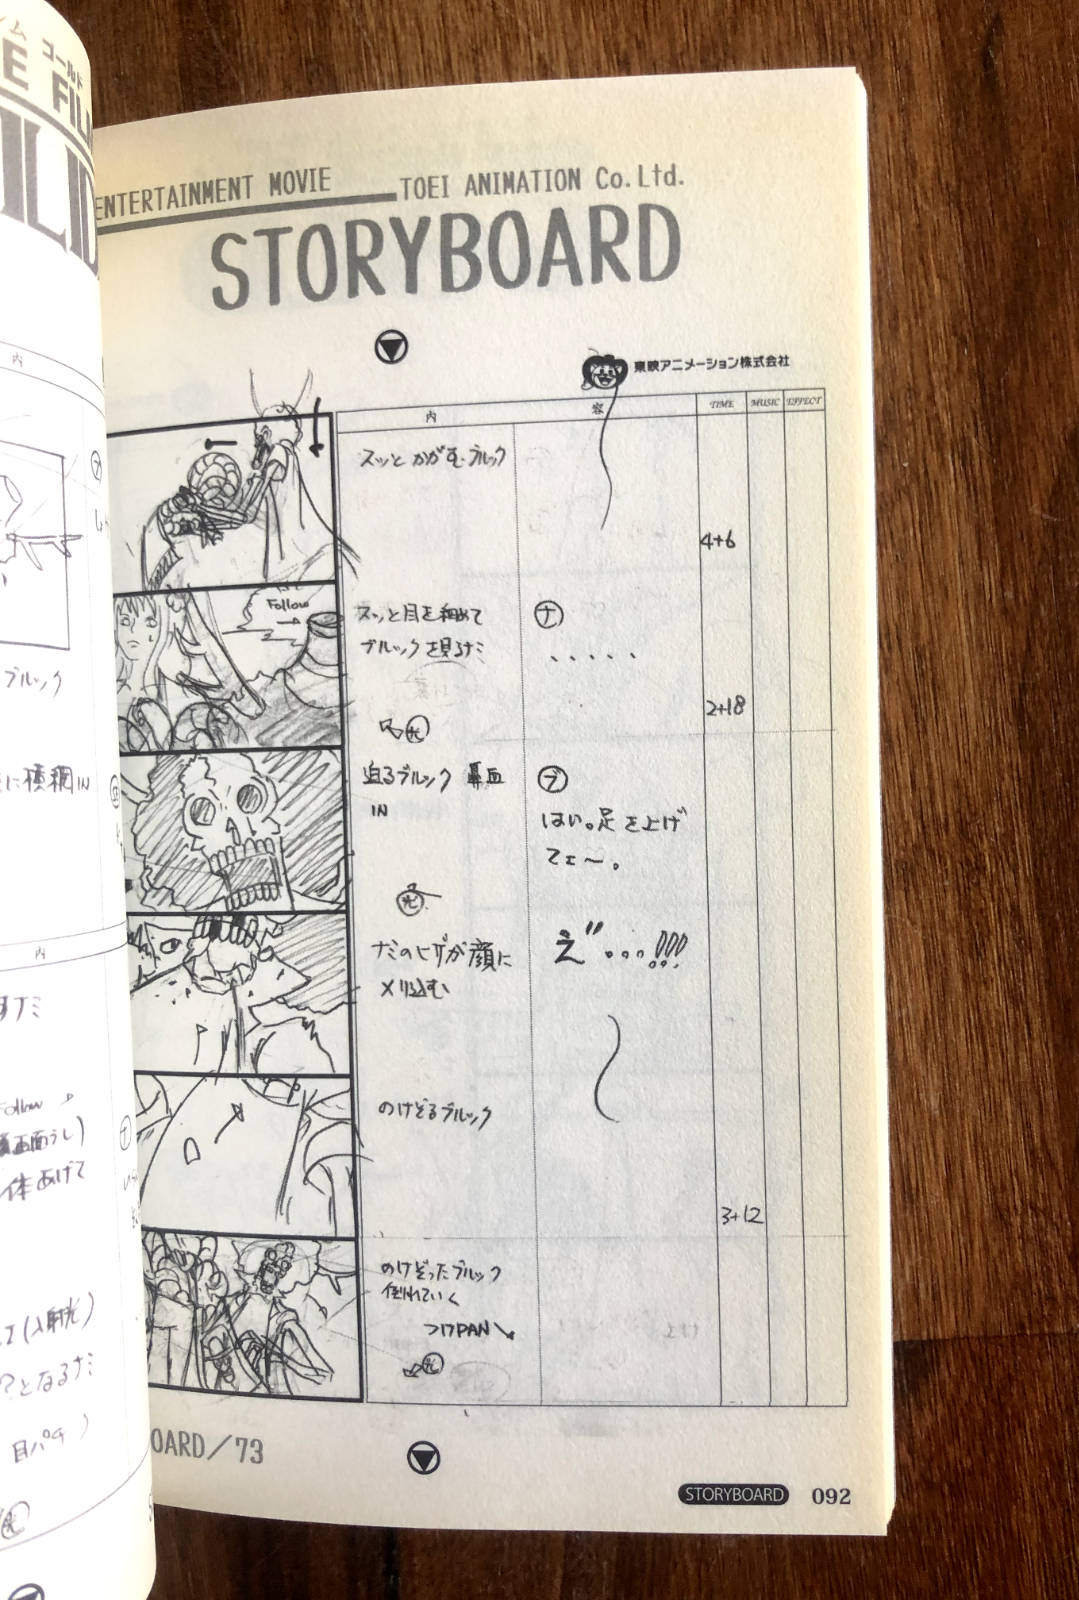 ム ゴールド
E FIL
ILD
内
ブルック
に横綱IN
内
Follow
体あげて
(入射光)
?となるナミ
目パチ)
ENTERTAINMENT MOVIE
TOEI ANIMATION Co.Ltd.
STORYBOARD
東映アニメーション株式会社
内 容 TIME MUSIC EFFECT
スッとかがむブルック
4+6
Follow
スッと目を細めて
ブルックを見るナミ
ナ
・・・・・
2+18
迫るブルック 鼻血
IN
ブ
はい。足を上げ
てェ〜。
ナミのヒザが顔に
メリ込む
え"...!!!
のけぞるブルック
3+12
のけぞったブルック
倒れていく
つけPAN
OARD/73
STORYBOARD 092